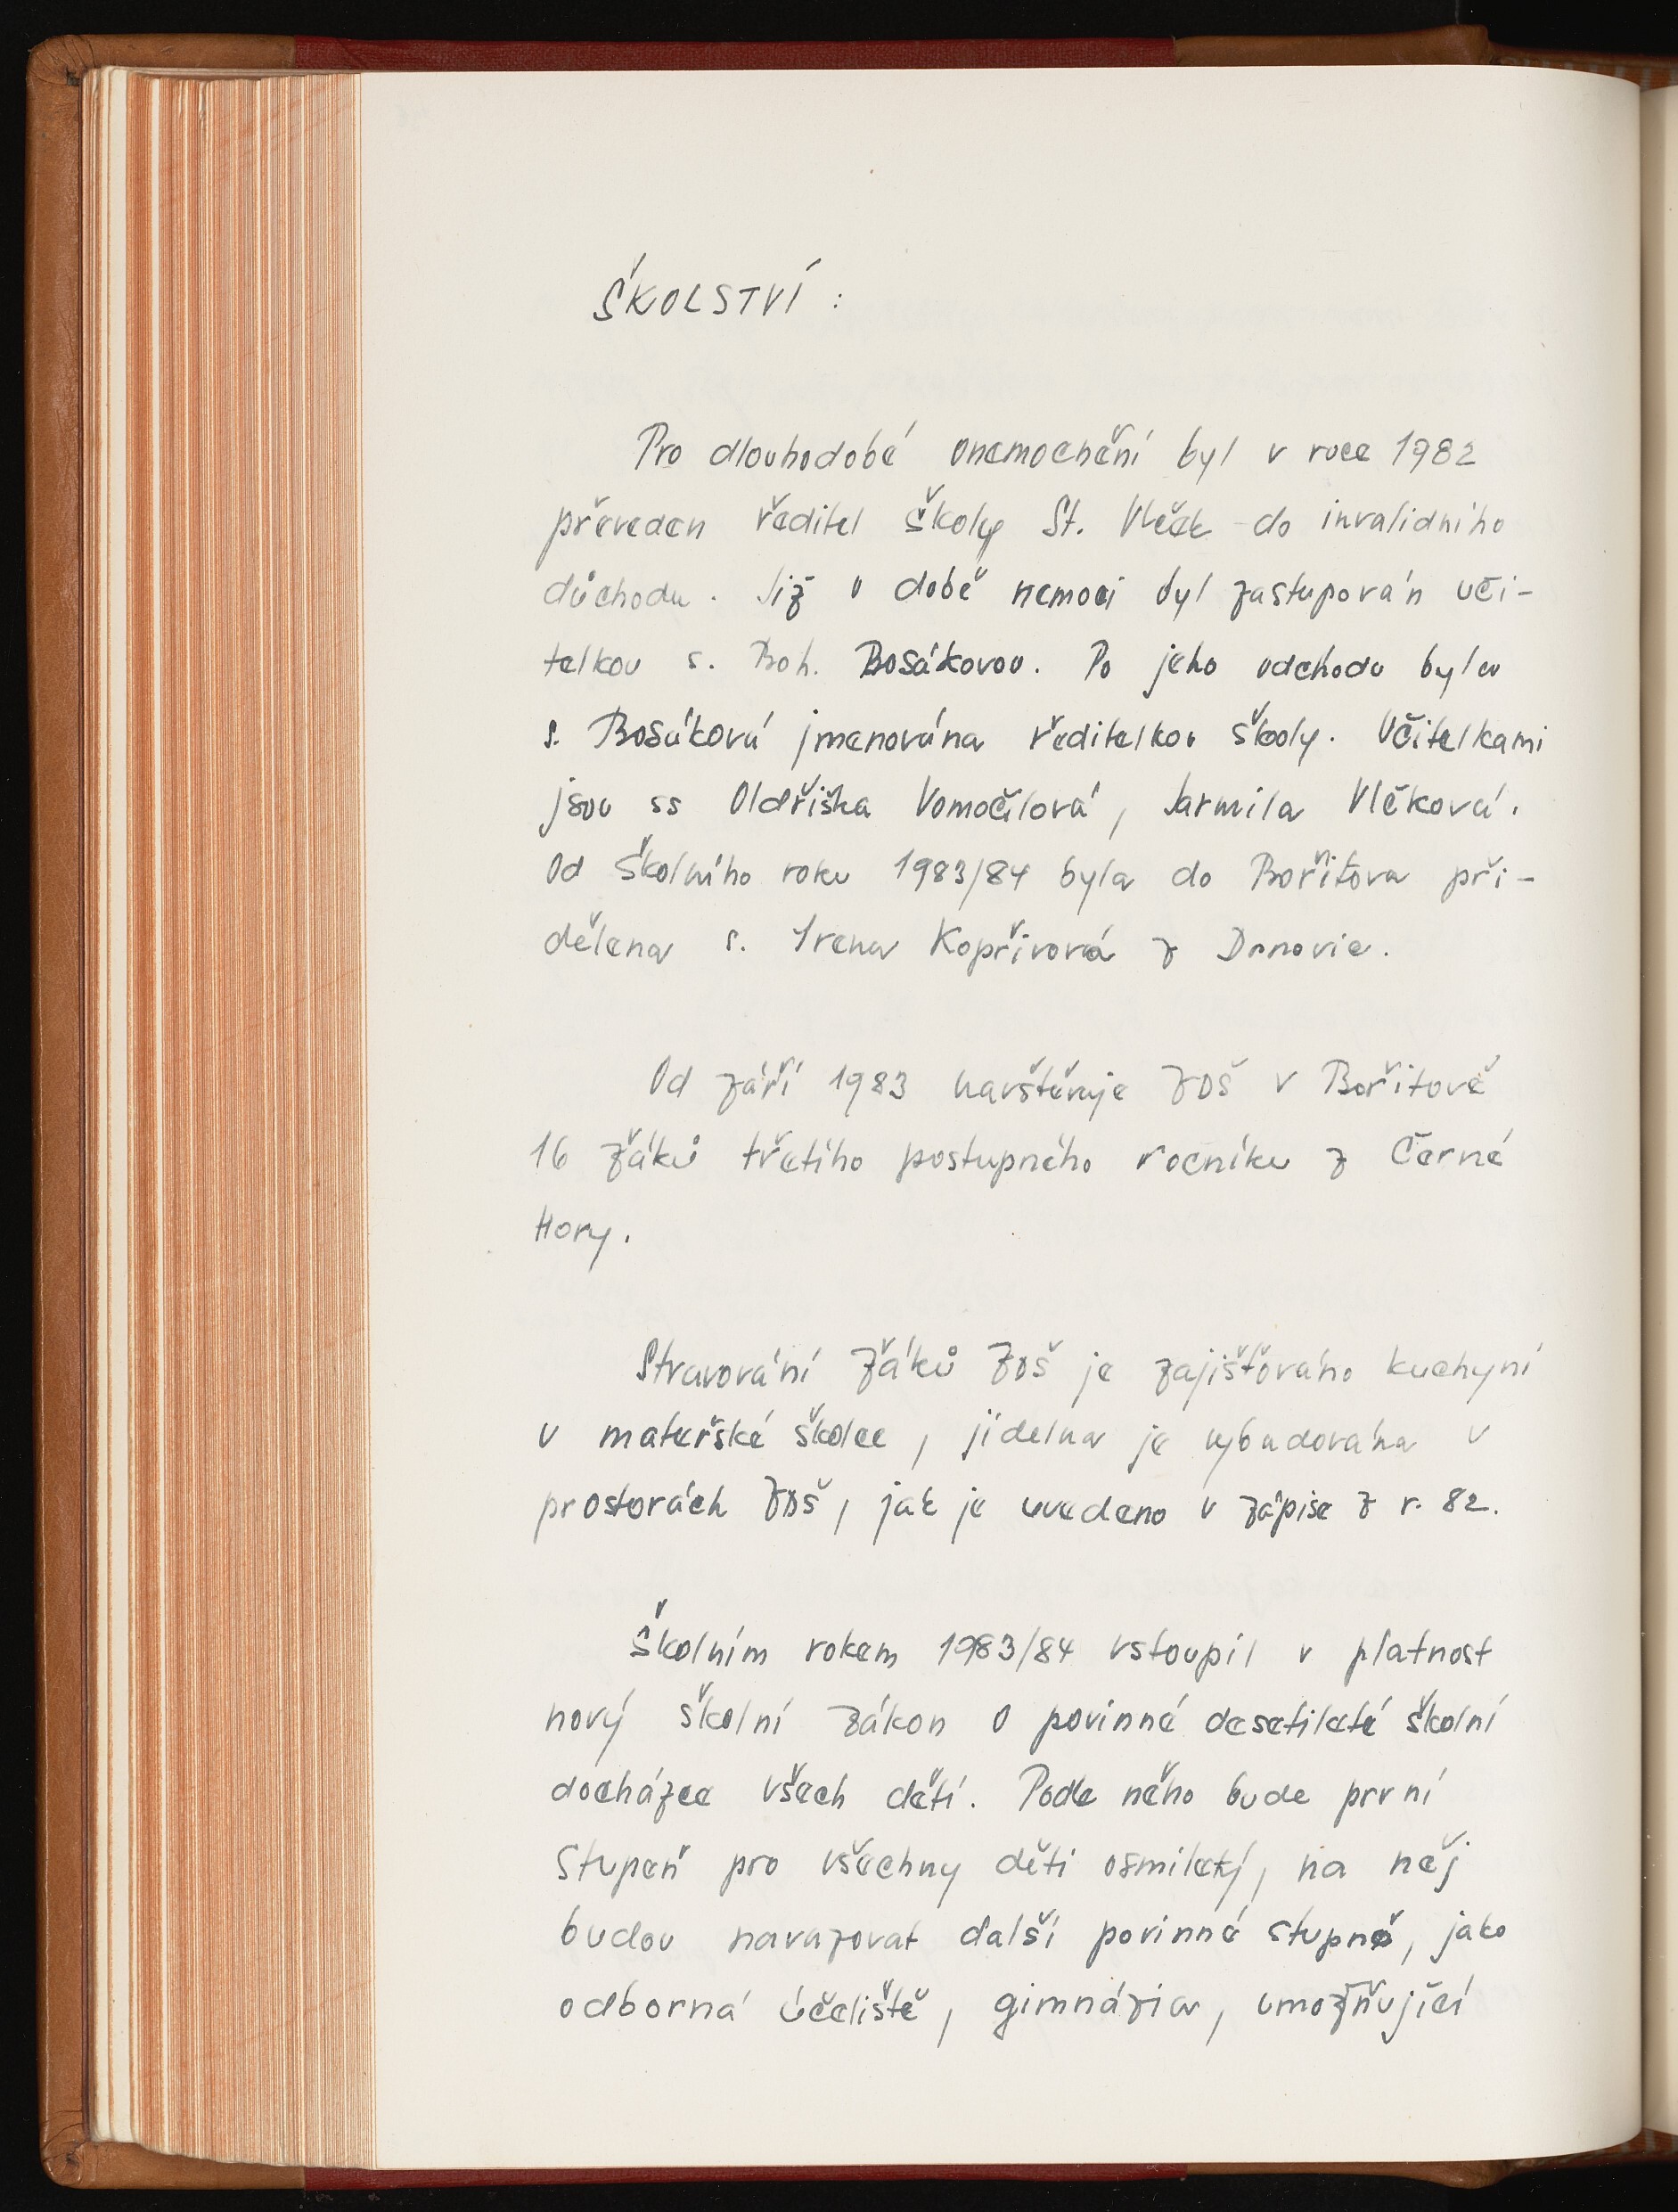 ŠKOLSTVÍ :
Pro dlouhodobé onemocnění byl v roce 1982
převeden ředitel školy St. Vlček do invalidního
důchodu. Již v době nemoci byl zastupován uči-
telkou s. Boh. Bosákovou. Po jeho odchodu byla
s. Bosáková jmenována ředitelkou školy. Učitelkami
jsou ss Oldřiška Vomočilová, Jarmila Vlčková.
Od školního roku 1983/84 byla do Bořitova při-
dělena s. Irena Kopřivová z Drnovic.
Od září 1983 navštěvuje ZDŠ v Bořitově
16 žáků třetího postupného ročníku z Černé
Hory.
Stravování žáků ZDŠ je zajišťováno kuchyní
v mateřské školce, jídelna je vybudována v
prostorách ZDŠ, jak je uvedeno v zápise z r. 82.
Školním rokem 1983/84 vstoupil v platnost
nový školní zákon o povinné desetileté školní
docházce všech dětí. Podle něho bude první
stupeň pro všechny děti osmiletý, na něj
budou navazovat další povinné stupně, jako
odborná účeliště, gimnázia, umožňující